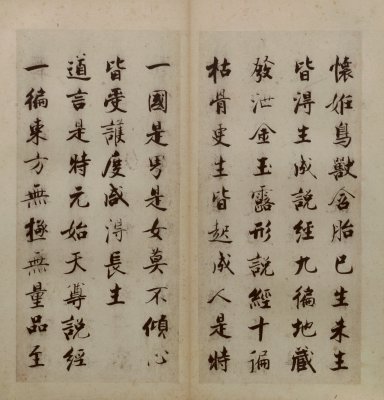 懷姙鳥獸含胎已生未生
皆得生成說經九徧地藏
發泄金玉露形說經十遍
枯骨更生皆起成人是時
一國是男是女莫不傾心
皆受護度咸得長生
道言是時元始天尊說經
一徧東方無極無量品至